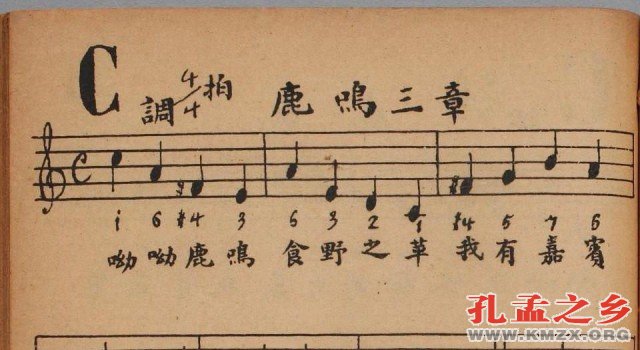 C調 4/4拍 鹿鳴三章
i 6 #4 3 6 3 2 1 #4 5 7 6
呦呦鹿鳴 食野之苹 我有嘉賓
孔孟之乡
WWW.KMZX.ORG